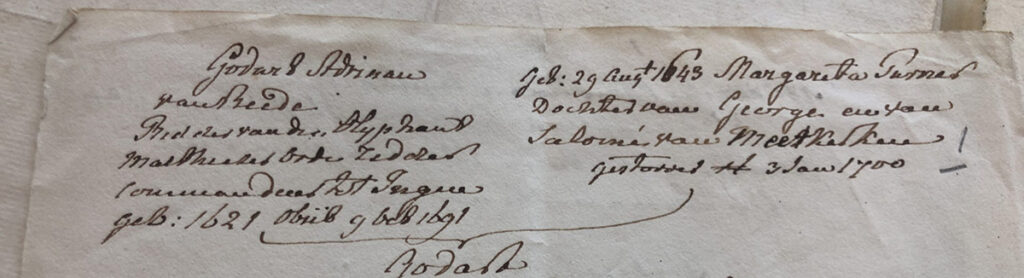 Godard Adriaan
van Reede
Ridder van den Olyphant
Maltheeser orde Zedder
Commandeur tot Ingen
geb: 1621 obiit 9 Octb 1691
geb: 29 Augt 1643 Margareta Turner
Dochter van George en van
Salomé van Meetkerken
gestorven tt 3 Jan 1700
Godart